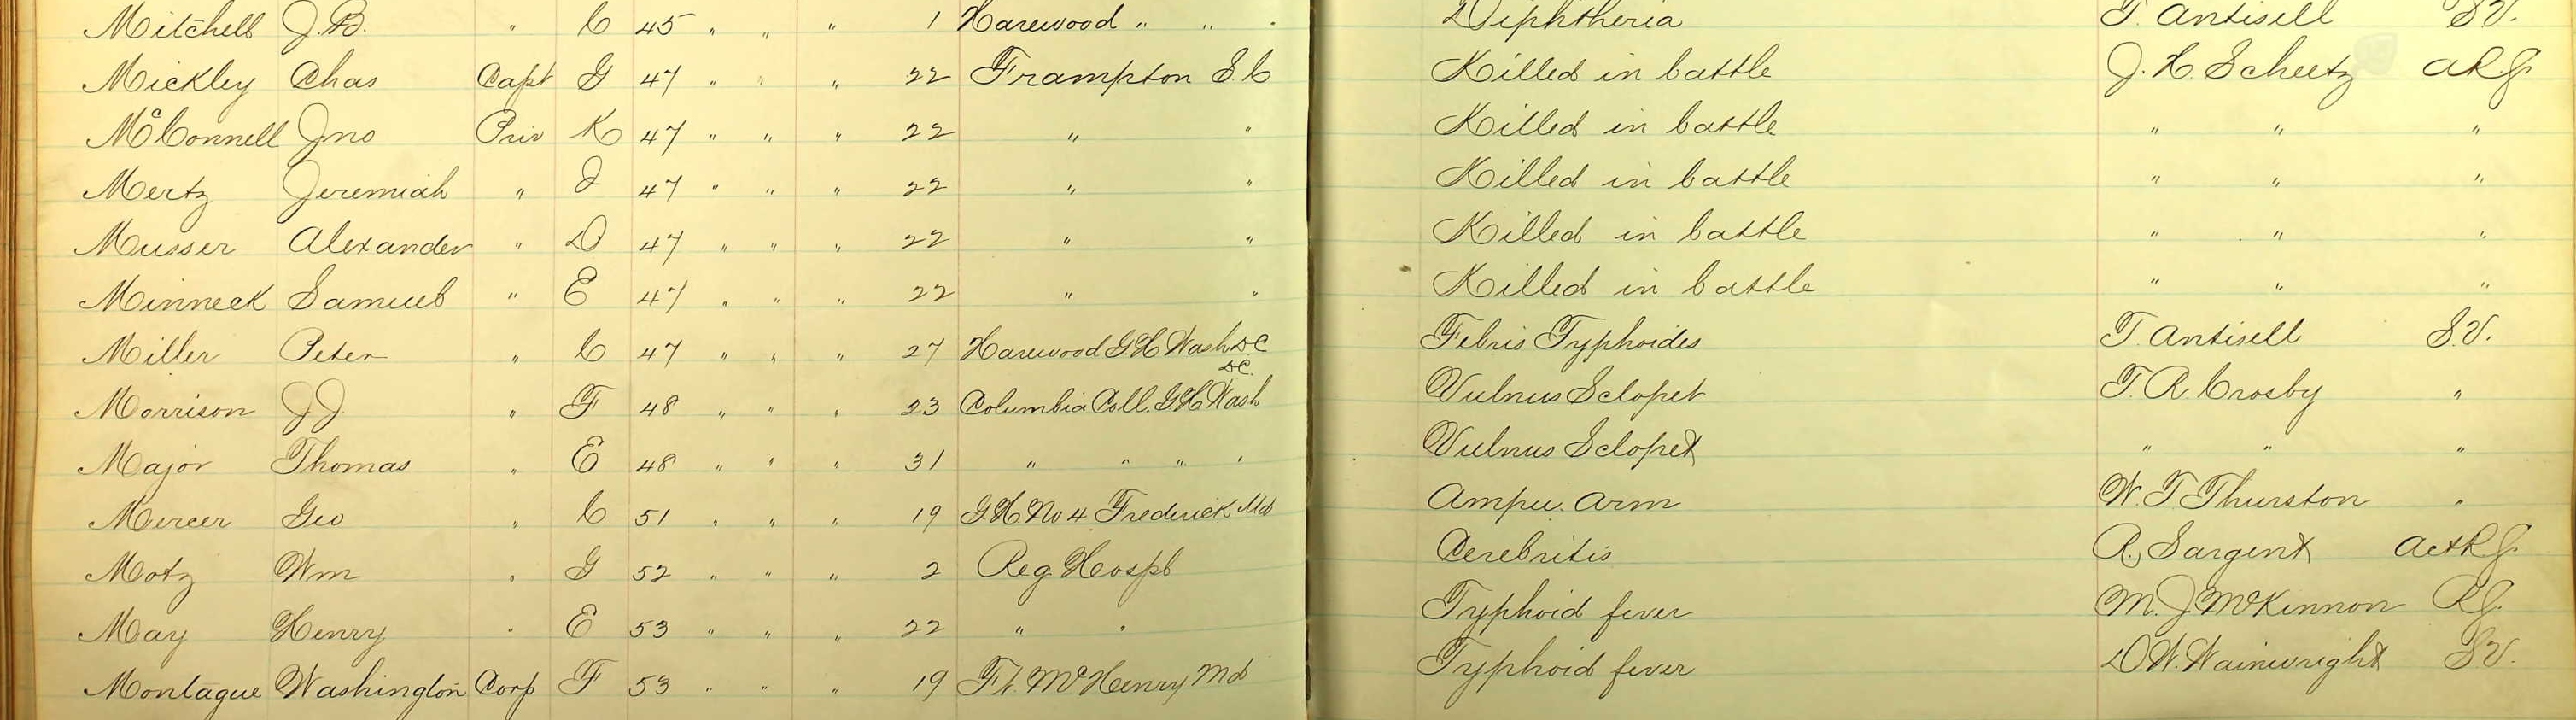 Mitchell J.B. " C 45 " " " 1 Harewood " " " Diphtheria T. Antisell S.V.
Mickley Chas Capt G 47 " " " 22 Frampton S.C Killed in battle J.H. Scheetz
McConnell Jno Priv K 47 " " " 22 " " Killed in battle " " "
Mertz Jeremiah " I 47 " " " 22 " " Killed in battle " " "
Musser Alexander " D 47 " " " 22 " " Killed in battle " " "
Minneck Samuel " E 47 " " " 22 " " Killed in battle " " "
Miller Peter " C 47 " " " 27 Harewood G.H. Wash D.C Febris Typhoides T. Antisell S.V.
Morrison J.J. " F 48 " " " 23 Columbia Coll. G.H. Wash D.C. Vulnus Sclopet T.R. Crosby "
Major Thomas " E 48 " " " 31 " " " " Vulnus Sclopet " " "
Mercer Geo " C 51 " " " 19 G.H. No 4 Frederick Md Ampu. Arm W.T. Thurston "
Motz Wm " G 52 " " " 2 Reg Hospl Cerebritis R. Sargent
May Henry " E 53 " " " 22 " " Typhoid fever M.J. McKinnon
Montague Washington Corp F 53 " " " 19 Ft. McHenry Md Typhoid fever D.W. Wainwright S.V.